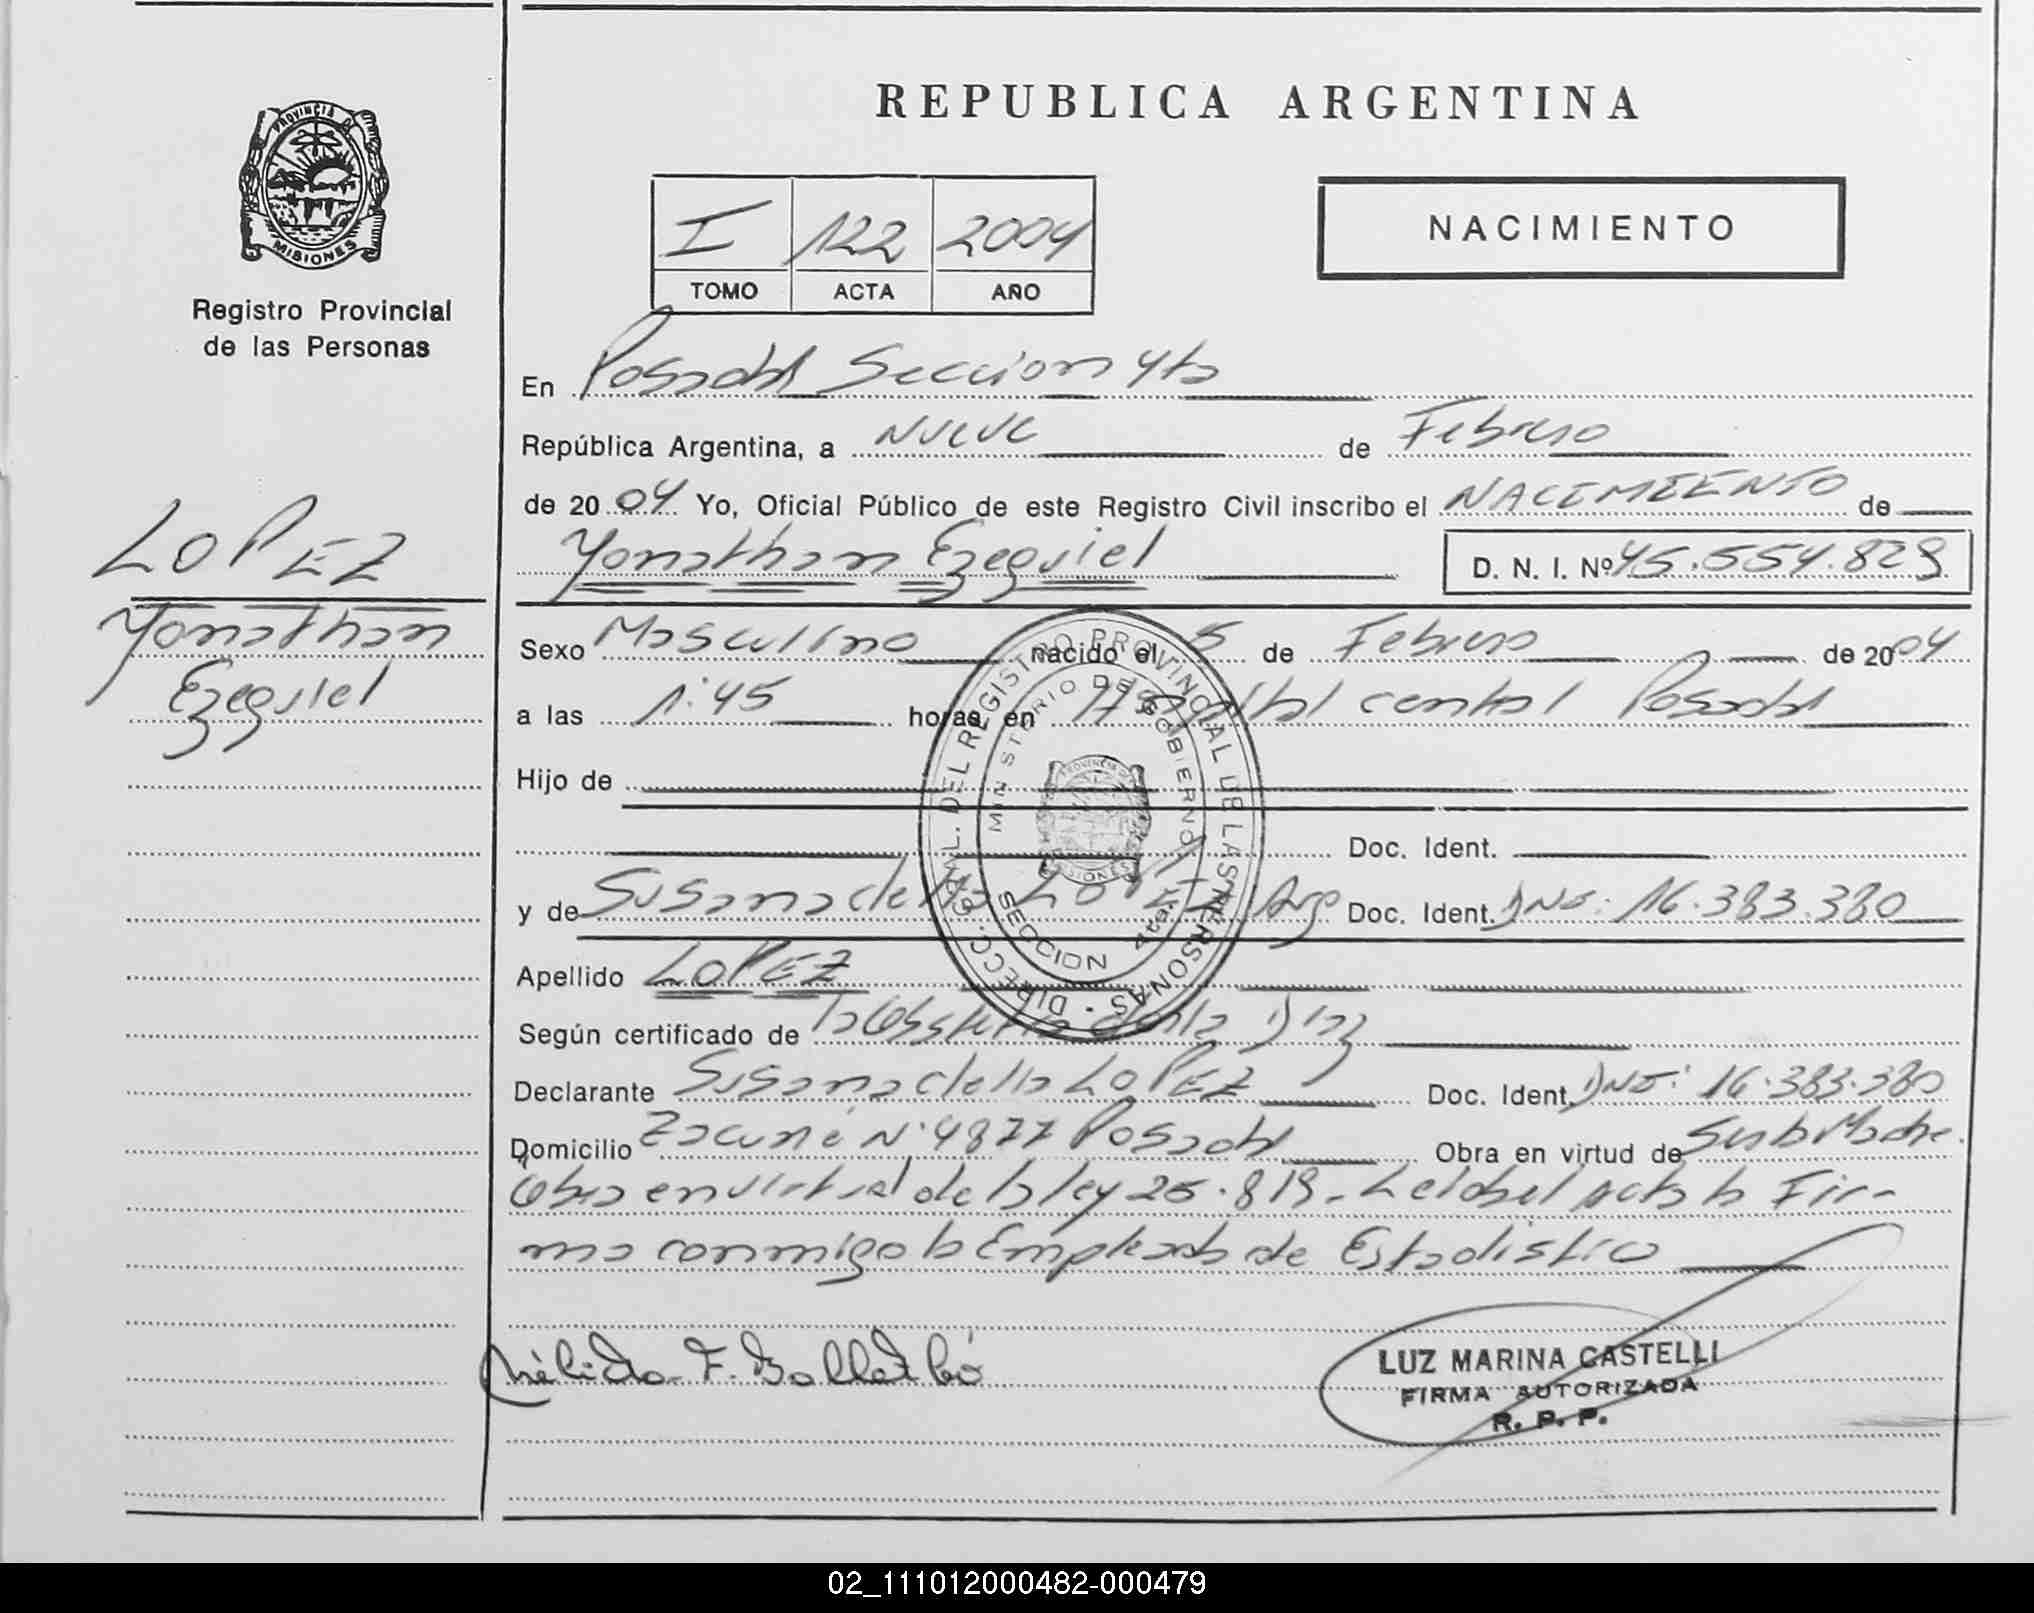 REPUBLICA ARGENTINA
PROVINCIA DE
MISIONES
Registro Provincial
de las Personas
I 122 2004
TOMO ACTA AÑO
NACIMIENTO
En Posadas Seccion 4ta
República Argentina, a Nueve de Febrero
de 2004 Yo, Oficial Público de este Registro Civil inscribo el NACIMIENTO de
Yonathan Ezequiel D. N. I. Nº 45.554.829
LOPEZ
Yonathan
Ezequiel
Sexo Masculino nacido el 5 de Febrero de 2004
a las 1:45 horas, en Hospital central Posadas
Hijo de
Doc. Ident.
y de Susana delia LOPEZ Arg Doc. Ident. DNI: 16.383.380
Apellido LOPEZ
Según certificado de la Obstetra Diaz
Declarante Susana delia LOPEZ Doc. Ident. DNI: 16.383.380
Domicilio N° 4877 Posadas Obra en virtud de ser la Madre.
Obra en virtud de la ley 25.819- Leida el Acta la Fir-
ma conmigo la Empleada de Estadistica
DIRECC. GRAL. DEL REGISTRO PROVINCIAL DE LAS PERSONAS
MINISTERIO DE GOBIERNO
SECCION
Nélida F.
LUZ MARINA CASTELLI
FIRMA AUTORIZADA
R. P. P.
02_111012000482-000479